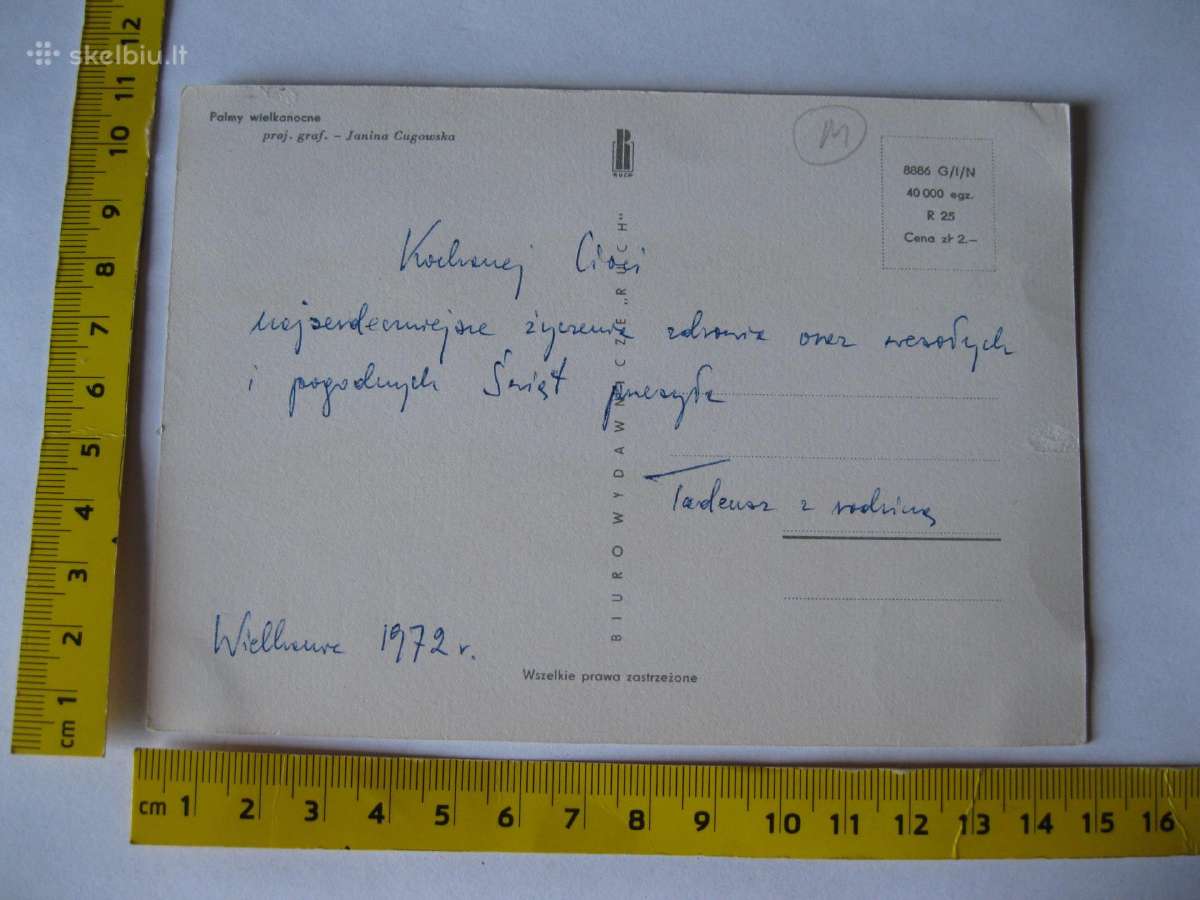 skelbiu.lt
Palmy wielkanocne
proj. graf. – Janina Cugowska
RUCH
M
8886 G/I/N
40 000 egz.
R 25
Cena zł 2.–
Kochanej Cioci
najserdeczniejsze życzenia zdrowia oraz wesołych
i pogodnych Świąt przesyła
Tadeusz z rodziną
Wielkanoc 1972 r.
BIURO WYDAWNICZE „RUCH"
Wszelkie prawa zastrzeżone
cm 1 2 3 4 5 6 7 8 9 10 11 12
cm 1 2 3 4 5 6 7 8 9 10 11 12 13 14 15 16